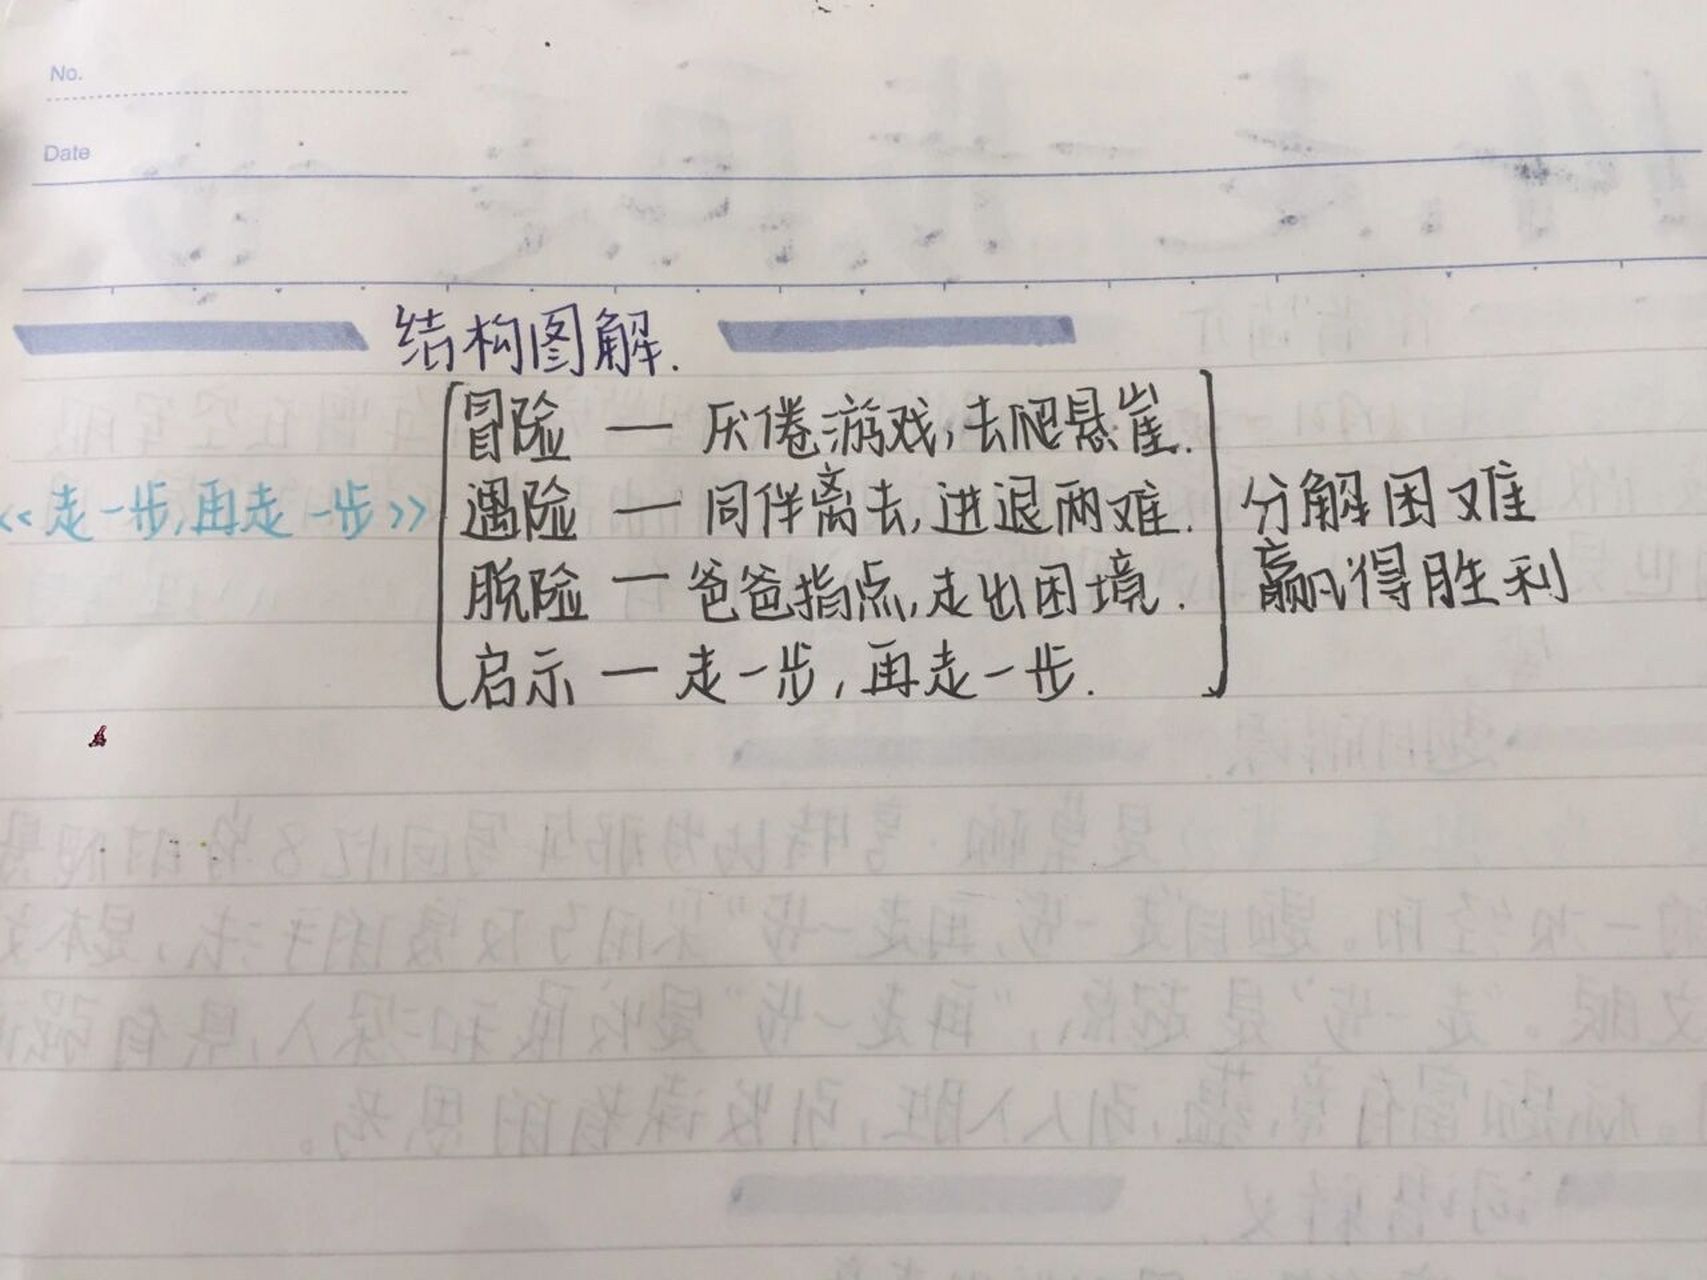 No.
Date
结构图解.
《走一步,再走一步》
冒险 — 厌倦游戏,去爬悬崖.
遇险 — 同伴离去,进退两难.
脱险 — 爸爸指点,走出困境.
启示 — 走一步,再走一步.
分解困难
赢得胜利